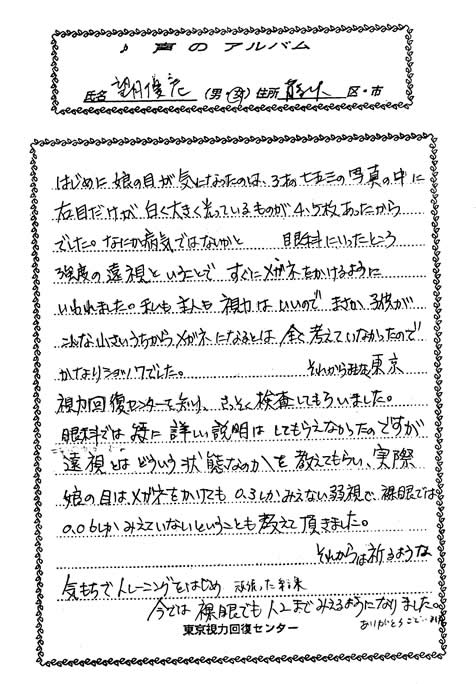 ♪ 声のアルバム
氏名 (男・女) 住所 区・市
はじめに娘の目が気になったのは、3才七五三の写真の中に
右目だけが白く大きく光っているものが4,5枚あったから
でした。なにか病気ではないかと 眼科にいったところ
強度の遠視ということで すぐにメガネをかけるように
いわれました。私も主人も視力はいいので まさか子供が
こんな小さいうちから、メガネになるとは 全く考えていなかったので
かなりショックでした。 それから 東京
視力回復センターを知り、さっそく検査してもらいました。
眼科では 詳しい説明は してもらえなかったのですが
遠視とはどういう状態なのかを教えてもらい、実際
娘の目はメガネをかけても 0.3しかみえない弱視で、裸眼では
0.06しかみえていないということも教えて頂きました。
それからは祈るような
気もちでトレーニングをはじめ 頑張った結果
今では裸眼でも1.2までみえるようになりました。
ありがとうございました
東京視力回復センター